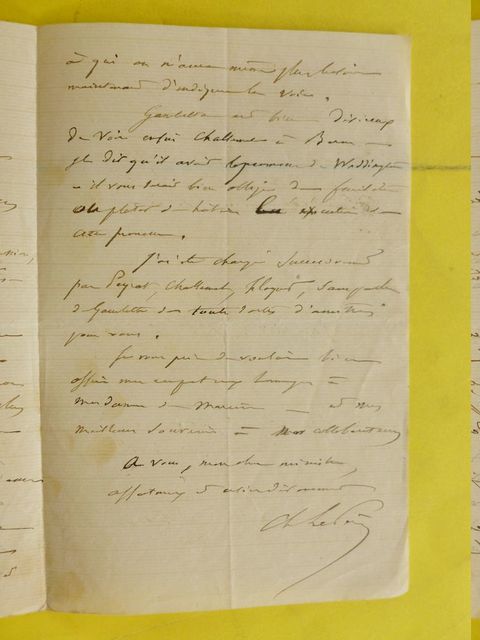 à qui on n'aura même plus besoin
maintenant d'indiquer la voie.
Gambetta est bien désireux
de voir enfin Challemel à Berne —
Il dit qu'il avait la promesse de Waddington
— il vous serait bien obligé de
ou plutôt de hâter l'exécution de
cette promesse.
J'ai été chargé successivement
par Peyrat, Challemel, Floquet,
et Gambetta de toute sorte d'amitiés
pour vous.
Je vous prie de vouloir bien
offrir mes respectueux hommages à
Madame de — et mes
meilleurs souvenirs à nos collaborateurs
A vous, mon cher ministre,
affectueux et bien dévoué